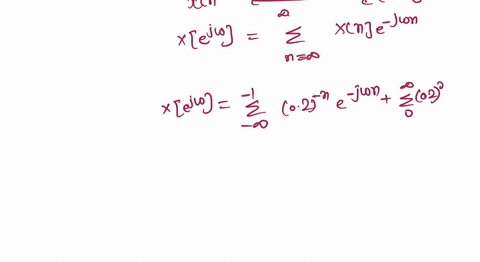 x[e^{jω}] = \sum_{n=∞}^{∞} x[n] e^{-jωn}
x[e^{jω}] = \sum_{-∞}^{-1} (0.2)^{-n} e^{-jωn} + \sum_{0}^{∞} (0.2)^{